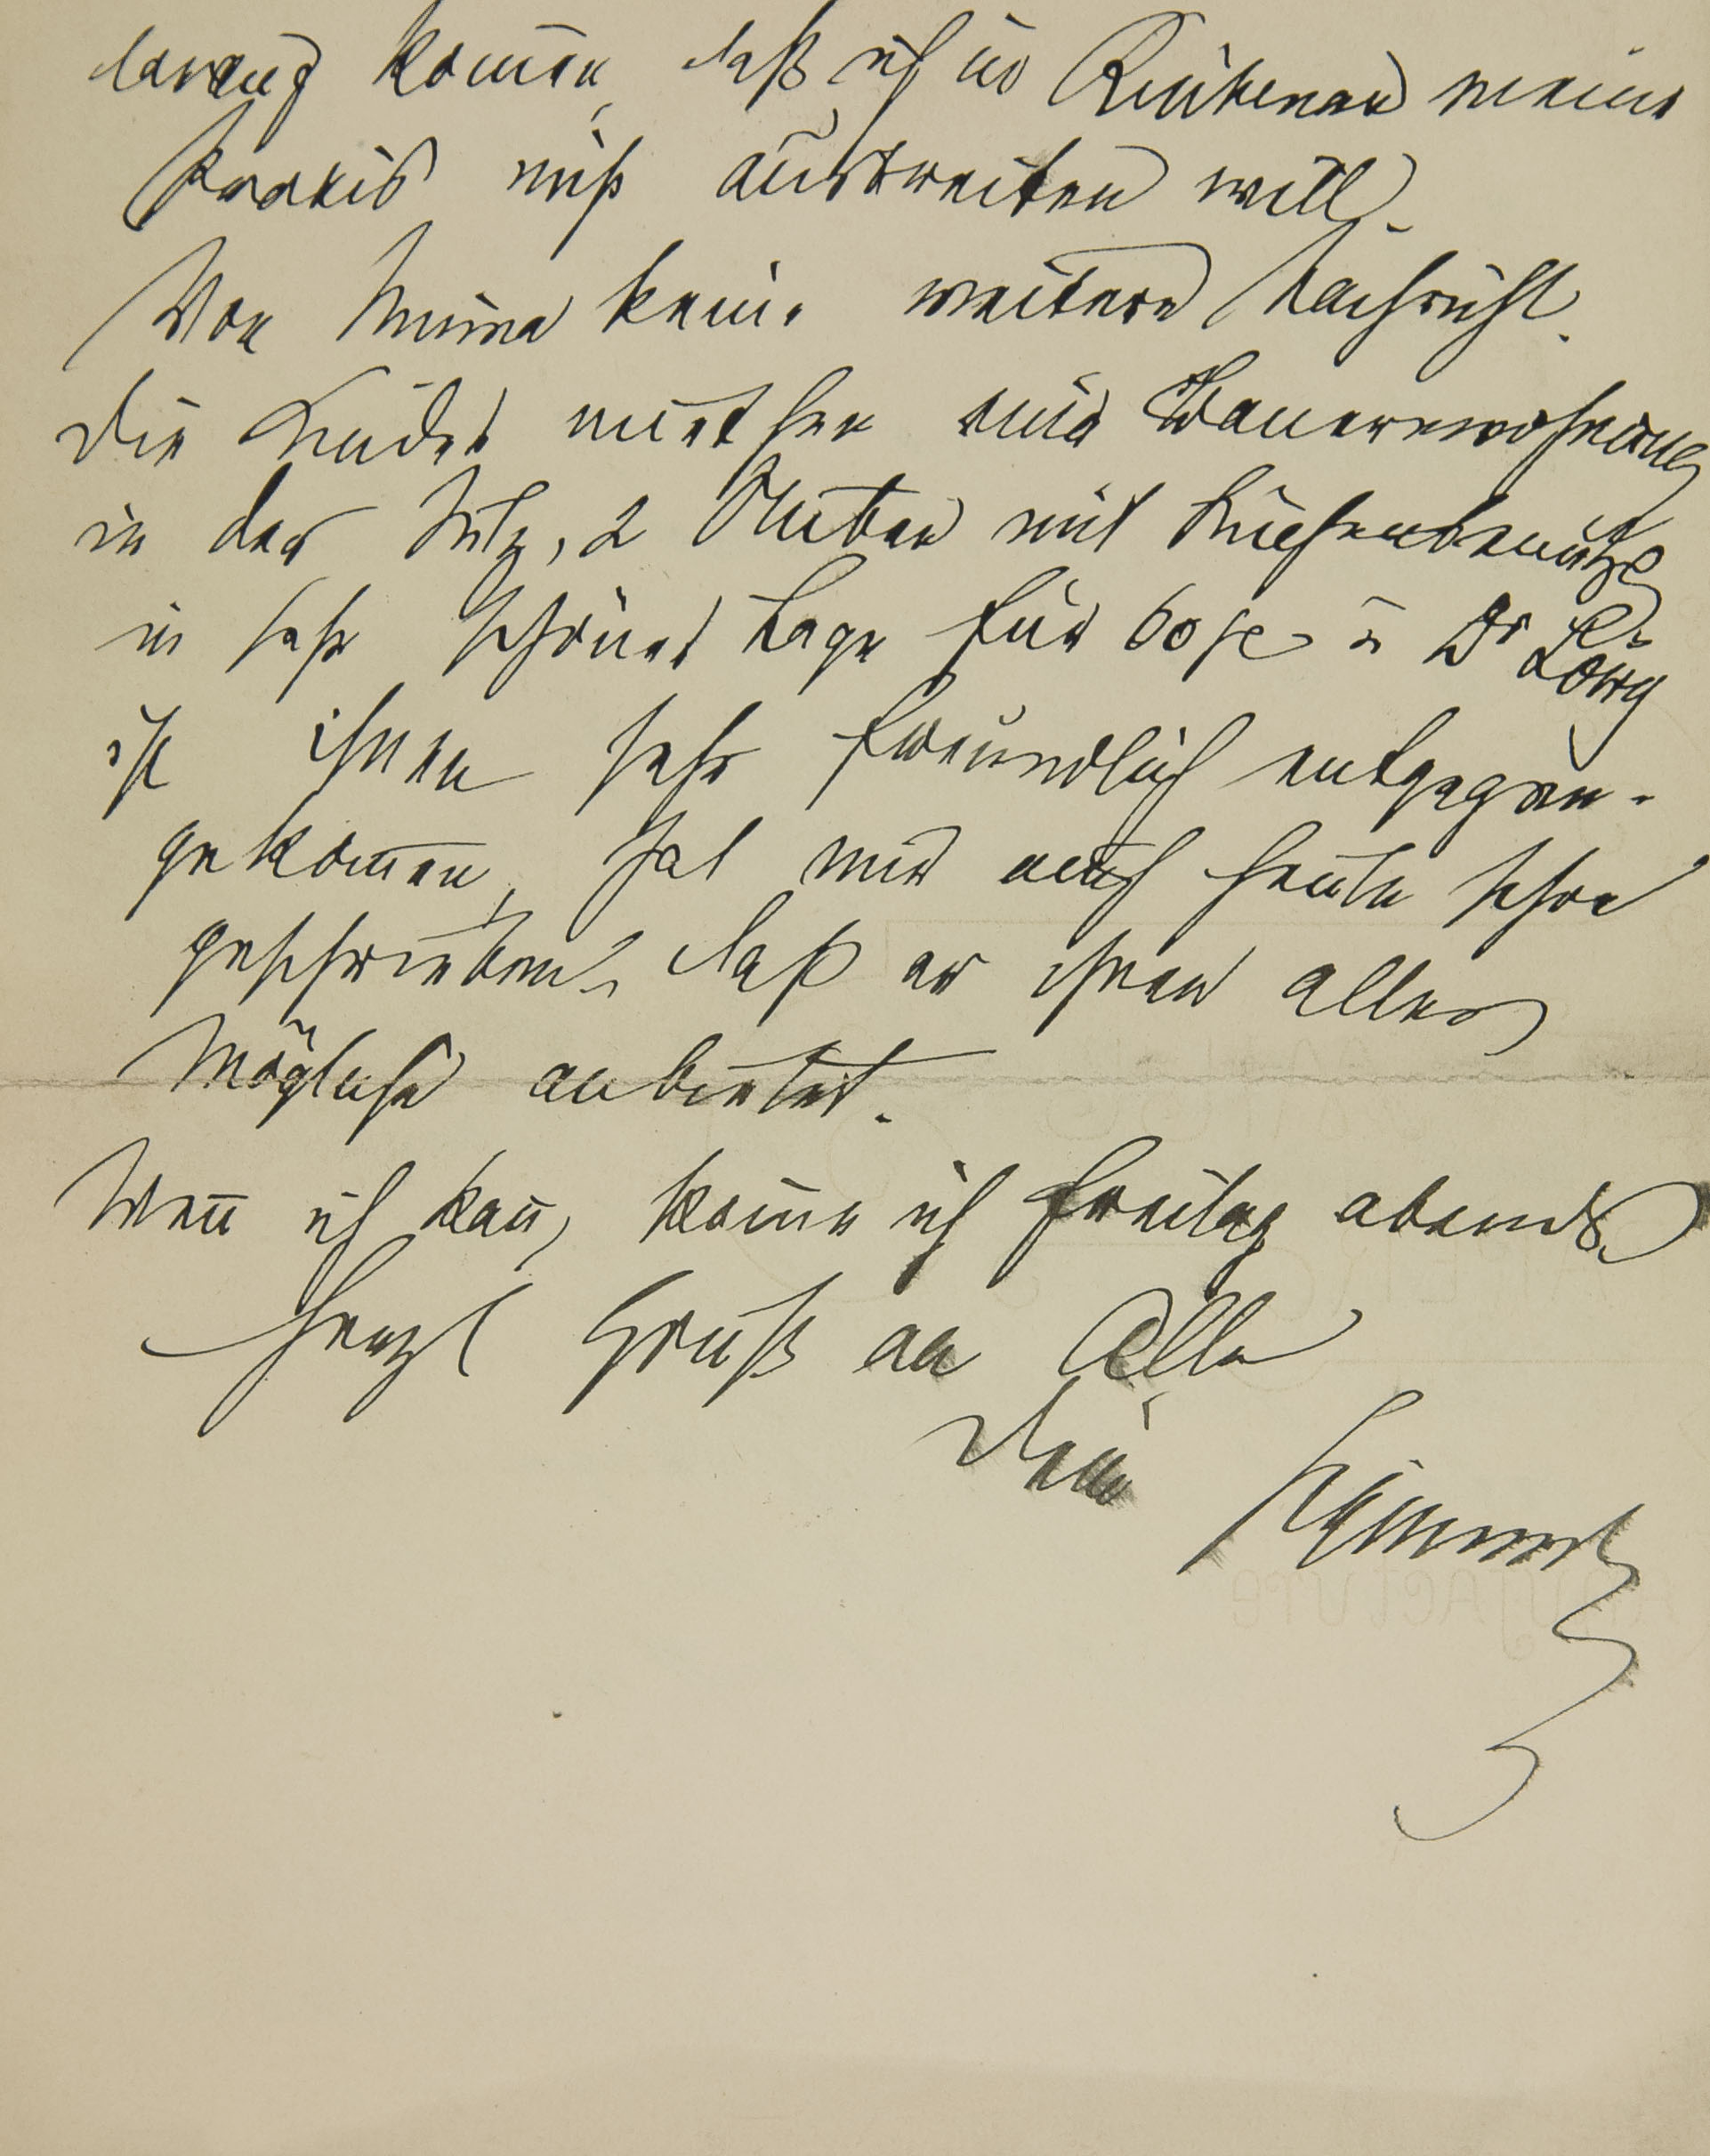 darauf kommen, daß ich in Reichenau meine
Praxis nicht ausbreiten will.
Von Minna keine weitere Nachricht.
Die Kinder miethen eine Bauernwohnung
in der 2 Stuben mit Küchenbenütze
in sehr schöner Lage für 60 fl u Dr L.
Löwy
ist ihnen sehr freundlich entgegen-
gekommen, hat mir auch heute schon
geschrieben, daß er ihnen alles
Mögliche anbietet.
Wenn ich kann, komme ich Freitag abends.
Herzl Gruß an Alle
Dein